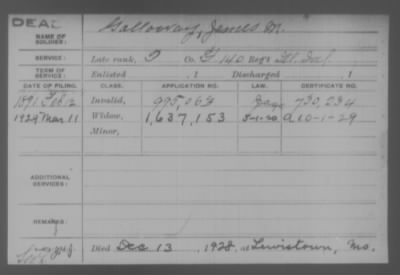 DEAD
NAME OF SOLDIER: Galloway, James M.
SERVICE: Late rank, Co. G. 140 Reg't Ill. Inf.
TERM OF SERVICE: Enlisted , 1 Discharged , 1
DATE OF FILING. CLASS. APPLICATION NO. LAW. CERTIFICATE NO.
1891 Feb. 12 Invalid, 995,064 730,234
1929 Mar 11 Widow, 1,637,153 5-1-20 A 10-1-29
Minor,
ADDITIONAL SERVICES:
REMARKS:
Died Dec 13, 1928, at Lewistown, Mo.